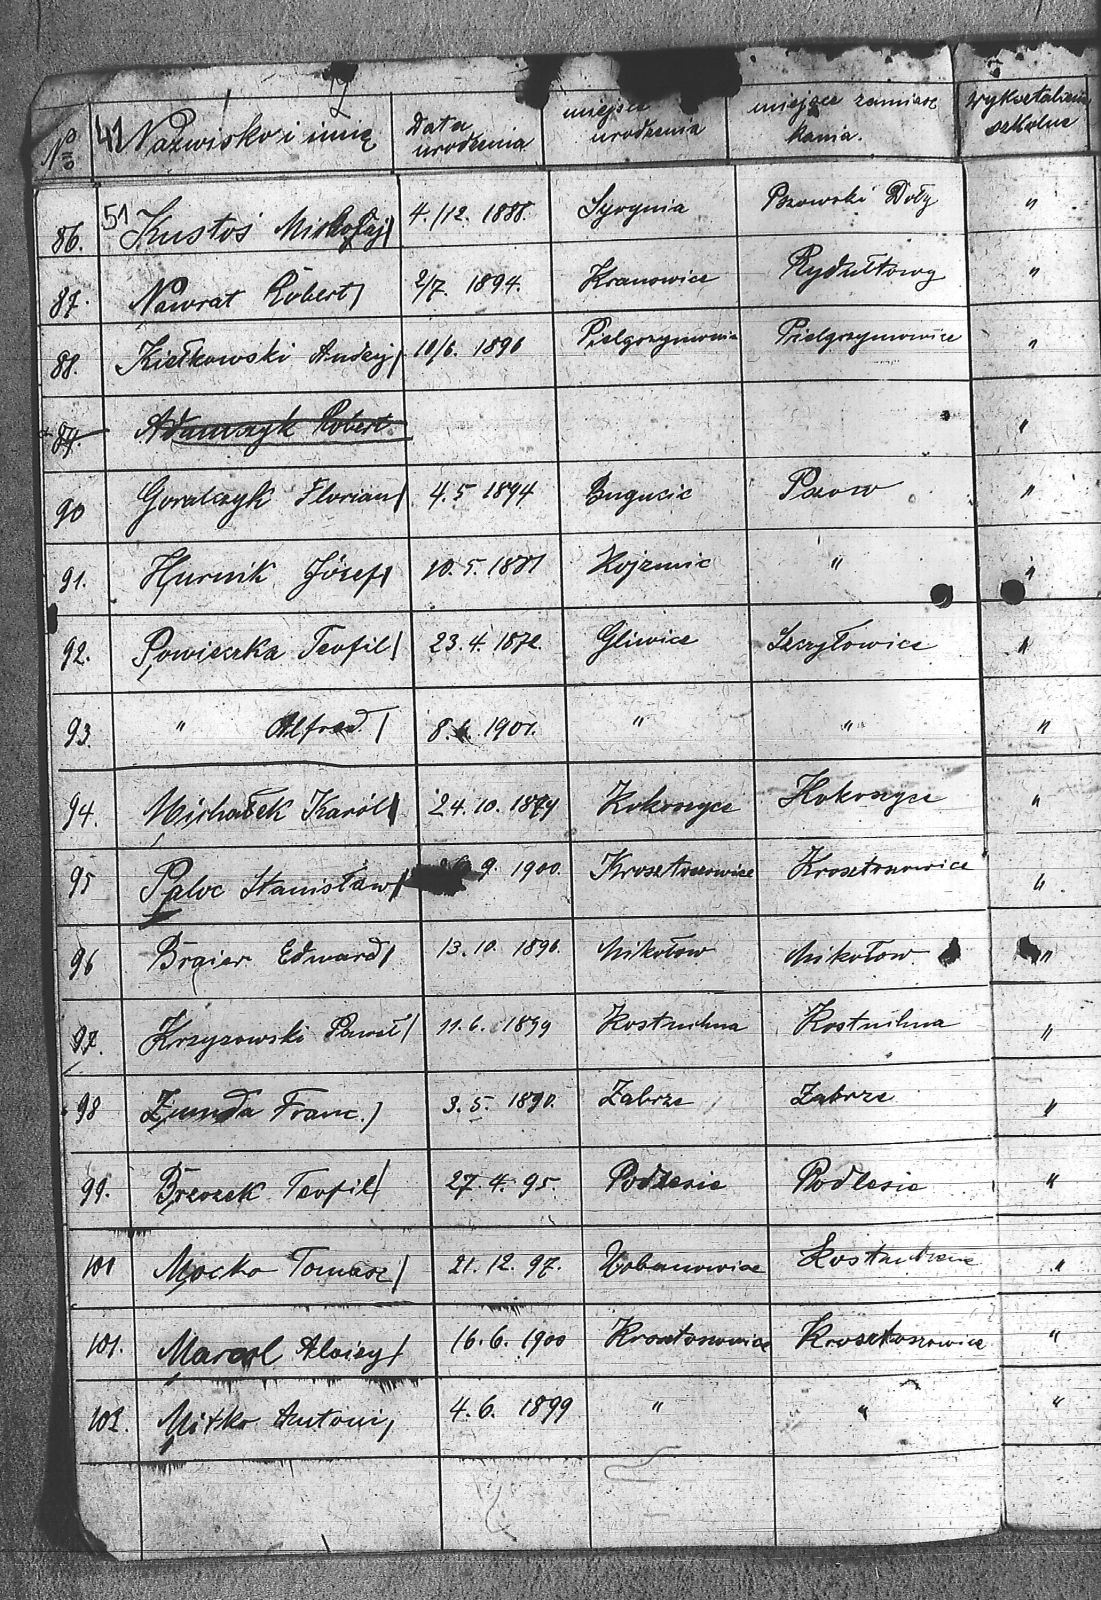 No 41 Nazwisko i imię Data urodzenia miejsce urodzenia miejsce zamieszkania. wykształcenie szkolne
51
86. Kustoś Mikołaj 4./12. 1888. Syrynia Pszowski Doły "
87. Nawrat Robert 2/7. 1894. Kranowice Rydułtowy "
88. Kiełkowski Andrzej 10/6. 1896 Pielgrzymowice "
89. Adamszyk Robert "
90 Goralczyk Florian 4.5 1894 Bogucic Pszow "
91. Hurnik Józef 10.5.1881 " "
92. Powieszka Teofil 23.4.1872. Gliwice Szczyłowice "
93. " Alfred 8. 1901. " " "
94. Michałek Karól 24.10.1879 Kokoszyce Kokoszyce "
95 Paloc Stanisław 9. 1900. Krosztoszowice Krosztoszowice "
96 Braier Edward 13.10. 1896. Mikołow Mikołow "
97. Krzyzowski Paweł 11.6. 1899 Kostuchna Kostuchna "
98 Żumda Franc. 3.5. 1890. Zabrze Zabrze "
99. Brzozek Teofil 27.4.95. Podlesie Podlesie "
100 Mocko Tomasz 21.12.97. Kostuchna "
101. Marcol Aloizy 16.6.1900 Krosztoszowice Krosztoszowice "
102. Mitko Antoni 4.6. 1899 " " "